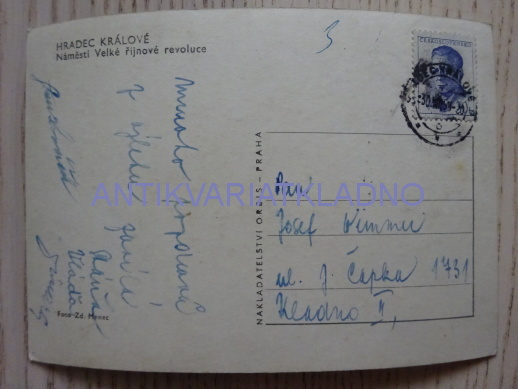 HRADEC KRÁLOVÉ
Náměstí Velké říjnové revoluce
mnoho pozdravů
z výletu zasílá
Vláďa
Foto-Zd. Menec
NAKLADATELSTVÍ ORBIS - PRAHA
3
ČESKOSLOVENSKO
HRADEC KRÁLOVÉ
Pan
Josef
ul. J. Čapka 1731
Kladno II,
ANTIKVARIATKLADNO